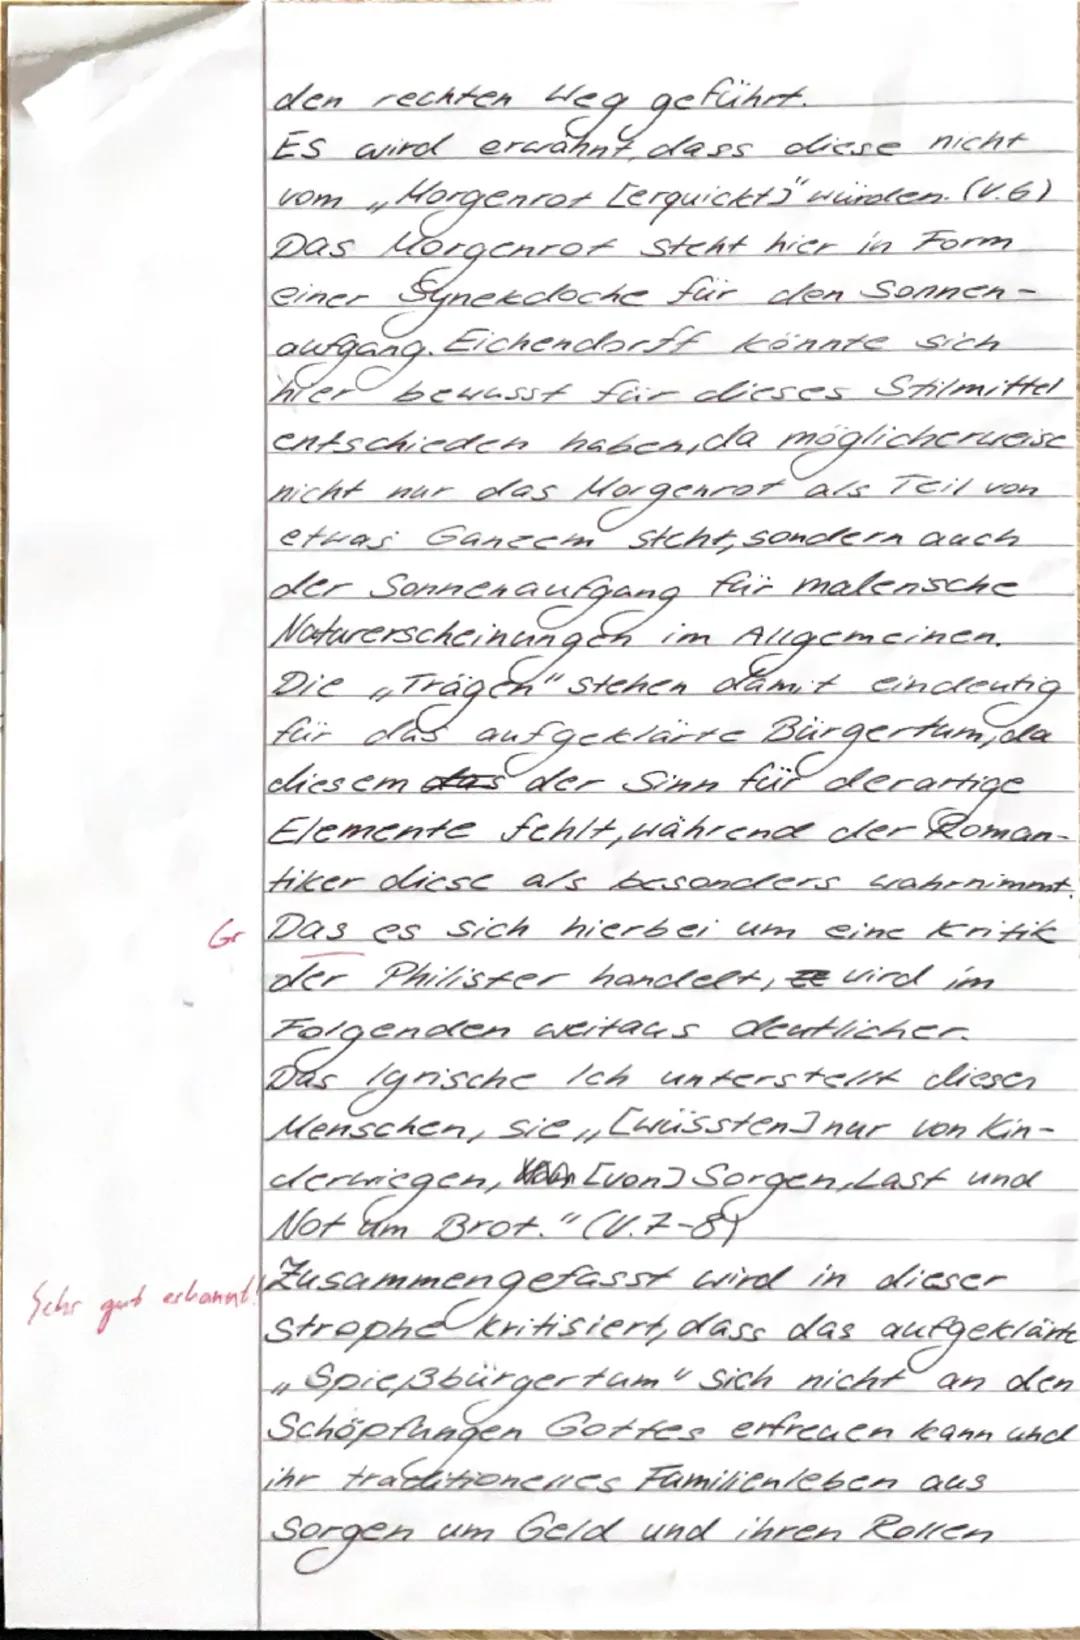 den rechten Weg geführt.
ES wird erwähnt, dass diese nicht
vom „Morgenrot [erquickt]" würden. (V.6)
Das Morgenrot steht hier in Form
einer Synekdoche für den Sonnen-
aufgang. Eichendorff könnte sich
hier bewusst für dieses Stilmittel
entschieden haben, da möglicherweise
nicht nur das Morgenrot als Teil von
etwas Ganzem steht, sondern auch
der Sonnenaufgang für malerische
Naturerscheinungen im Allgemeinen.
Die „Trägen" stehen damit eindeutig
für das aufgeklärte Bürgertum, da
diesem das der Sinn für derartige
Elemente fehlt, während der Roman-
tiker diese als besonders wahrnimmt.
Gr Das es sich hierbei um eine Kritik
der Philister handelt, wird im
Folgenden weitaus deutlicher.
Das lyrische Ich unterstellt diesen
Menschen, sie „[wüssten] nur von Kin-
derwiegen, [von] Sorgen, Last und
Not um Brot." (V.7-8)
Sehr gut erkannt! Zusammengefasst wird in dieser
Strophe kritisiert, dass das aufgeklärte
„Spießbürgertum" sich nicht an den
Schöpfungen Gottes erfreuen kann und
ihr traditionelles Familienleben aus
Sorgen um Geld und ihren Rollen